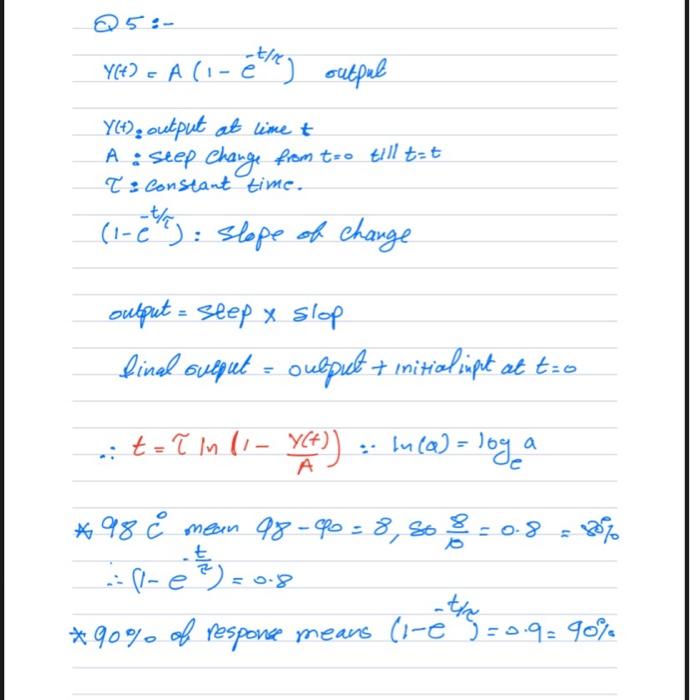 Q5 :-
Y(t) = A (1 - e^-t/τ) output
Y(t): output at time t
A : step change from t=0 till t=t
τ : constant time.
(1-e^-t/τ) : slope of change
output = step x slop
final output = output + initial inpt at t=0
∴ t = τ ln (1 - Y(t)/A) ∵ ln(a) = log_e a
* 98 c° mean 98 - 90 = 8, so 8/10 = 0.8 = 80%
∴ (1- e^-t/τ) = 0.8
* 90% of response means (1-e^-t/τ) = 0.9 = 90%